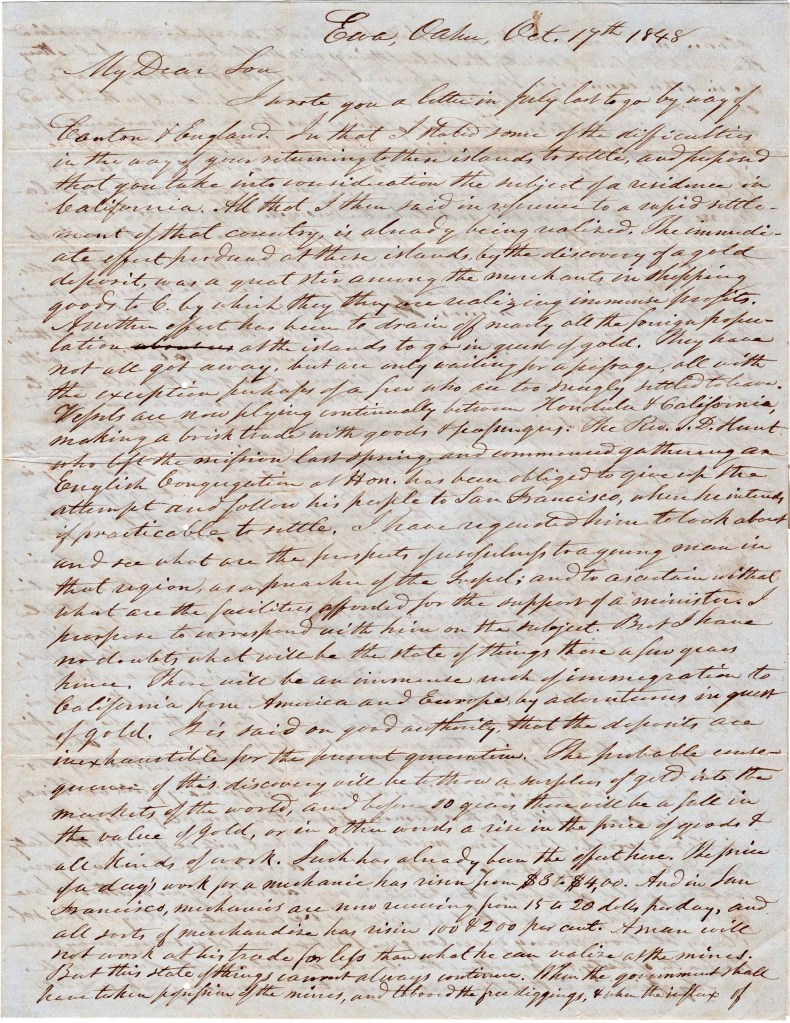 Ewa, Oahu, Oct. 17th 1848
My Dear Son
I wrote you a letter in July last to go by way of
Canton & England. In that I stated some of the difficulties
in the way of your returning to these islands to settle, and proposed
that you take into consideration the subject of a residence in
California. All that I then said in reference to a rapid settle-
ment of that country, is already being realized. The immedi-
ate effect produced at these islands, by the discovery of a gold
deposit, was a great stir among the merchants in shipping
goods to C. by which they they are realizing immense profits.
Another effect has been to drain off nearly all the foreign popu-
lation about us at the islands to go in quest of gold. They have
not all got away, but are only waiting for a passage, all with
the exception perhaps of a few who are too snugly settled to leave.
Vessels are now plying continually between Honolulu & California,
making a brisk trade with goods & passengers. The Rev. T. D. Hunt
who left the mission last spring, and commenced gathering an
English Congregation at Hon. has been obliged to give up the
attempt and follow his people to San Francisco, where he intends
if practicable to settle. I have requested him to look about
and see what are the prospects of usefulness to a young man in
that region, as a preacher of the Gospel; and to ascertain withal
what are the facilities afforded for the support of a minister. I
purpose to correspond with him on the subject. But I have
no doubts what will be the state of things there a few years
hence. There will be an immense rush of immigration to
California from America and Europe, by adventurers in quest
of gold. It is said on good authority, that the deposits are
inexhaustible for the present generation. The probable conse-
quence of this discovery will be to throw a surplus of gold into the
markets of the world, and before 10 years there will be a fall in
the value of gold, or in other words a rise in the price of goods &
all kinds of work. Such has already been the effect here. The price
of a day's work for a mechanic has risen from $3 to $4,00. And in San
Francisco, mechanics are now receiving from 15 to 20 dolls per day, and
all sorts of merchandise has risen 100 & 200 per cent. A man will
not work at his trade for less than what he can realize at the mines.
But this state of things cannot always continue. When the government shall
have taken possession of the mines, and the free diggings, & when the reflux of